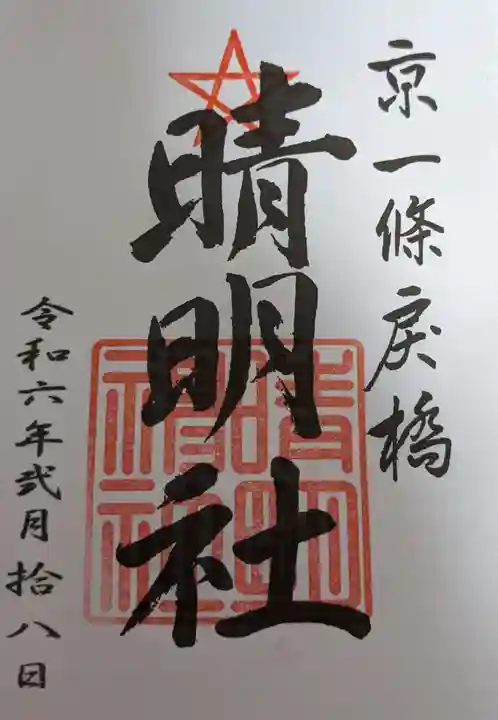 京一條戻橋
晴明社
晴明
神社
令和六年弐月拾八日